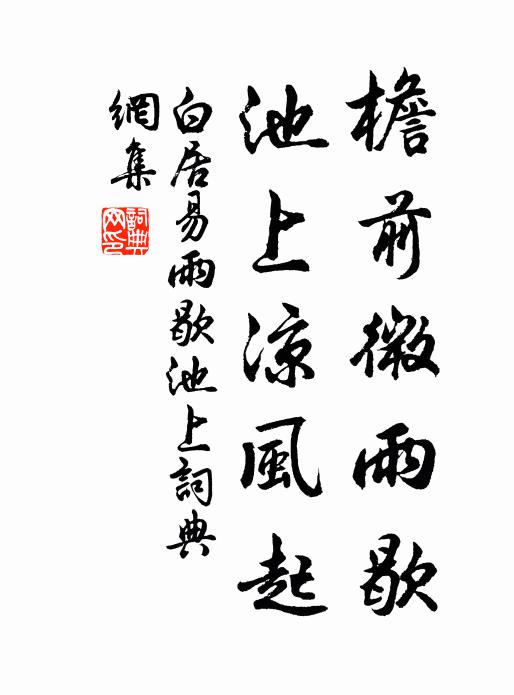 檐前微雨歇
池上涼風起
白居易雨歇池上詞典
網集
詞典
网印